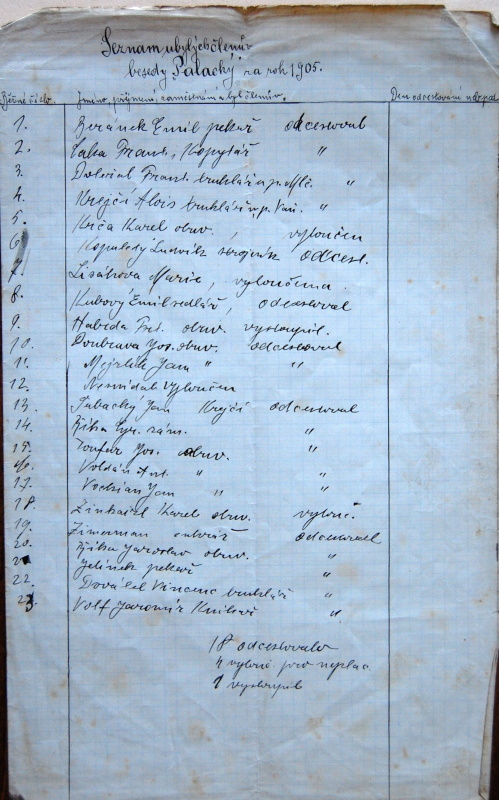 Seznam ubylých členův
besedy Palacký za rok 1905.
Běžné číslo. Jméno, příjmení, zaměstnání a byt členův. Den odcestování neb
1. Beránek Emil pekař odcestoval
2. Frant., Kopytář "
3. Doležal Frant. truhlář "
4. Krejčí Alois truhlář "
5. Karel obuv. , vyloučen
6. Kopulety Ludvík strojník odcest.
7. Marie, vyloučena.
8. Kubový Emil sedlář, odcestoval
9. Habeda Frt. obuv. vystoupil.
10. Doubrava Jos. obuv. odcestoval
11. Jan " "
12. Nesvidal vyloučen
13. Tabacký Jan Krejčí odcestoval
14. Říha zám. "
15. Toufar Jos. obuv. "
16. Voldán Ant. " "
17. Jan " "
18. Karel obuv. vylouč.
19. Zimerman odcestoval
20. Říha Jaroslav obuv. "
21 Jelínek pekař "
22. Vincenc truhlář "
23. Volf Jaromír Knihař "
18 odcestovalo
4 vylouč. pro neplac.
1 vystoupil